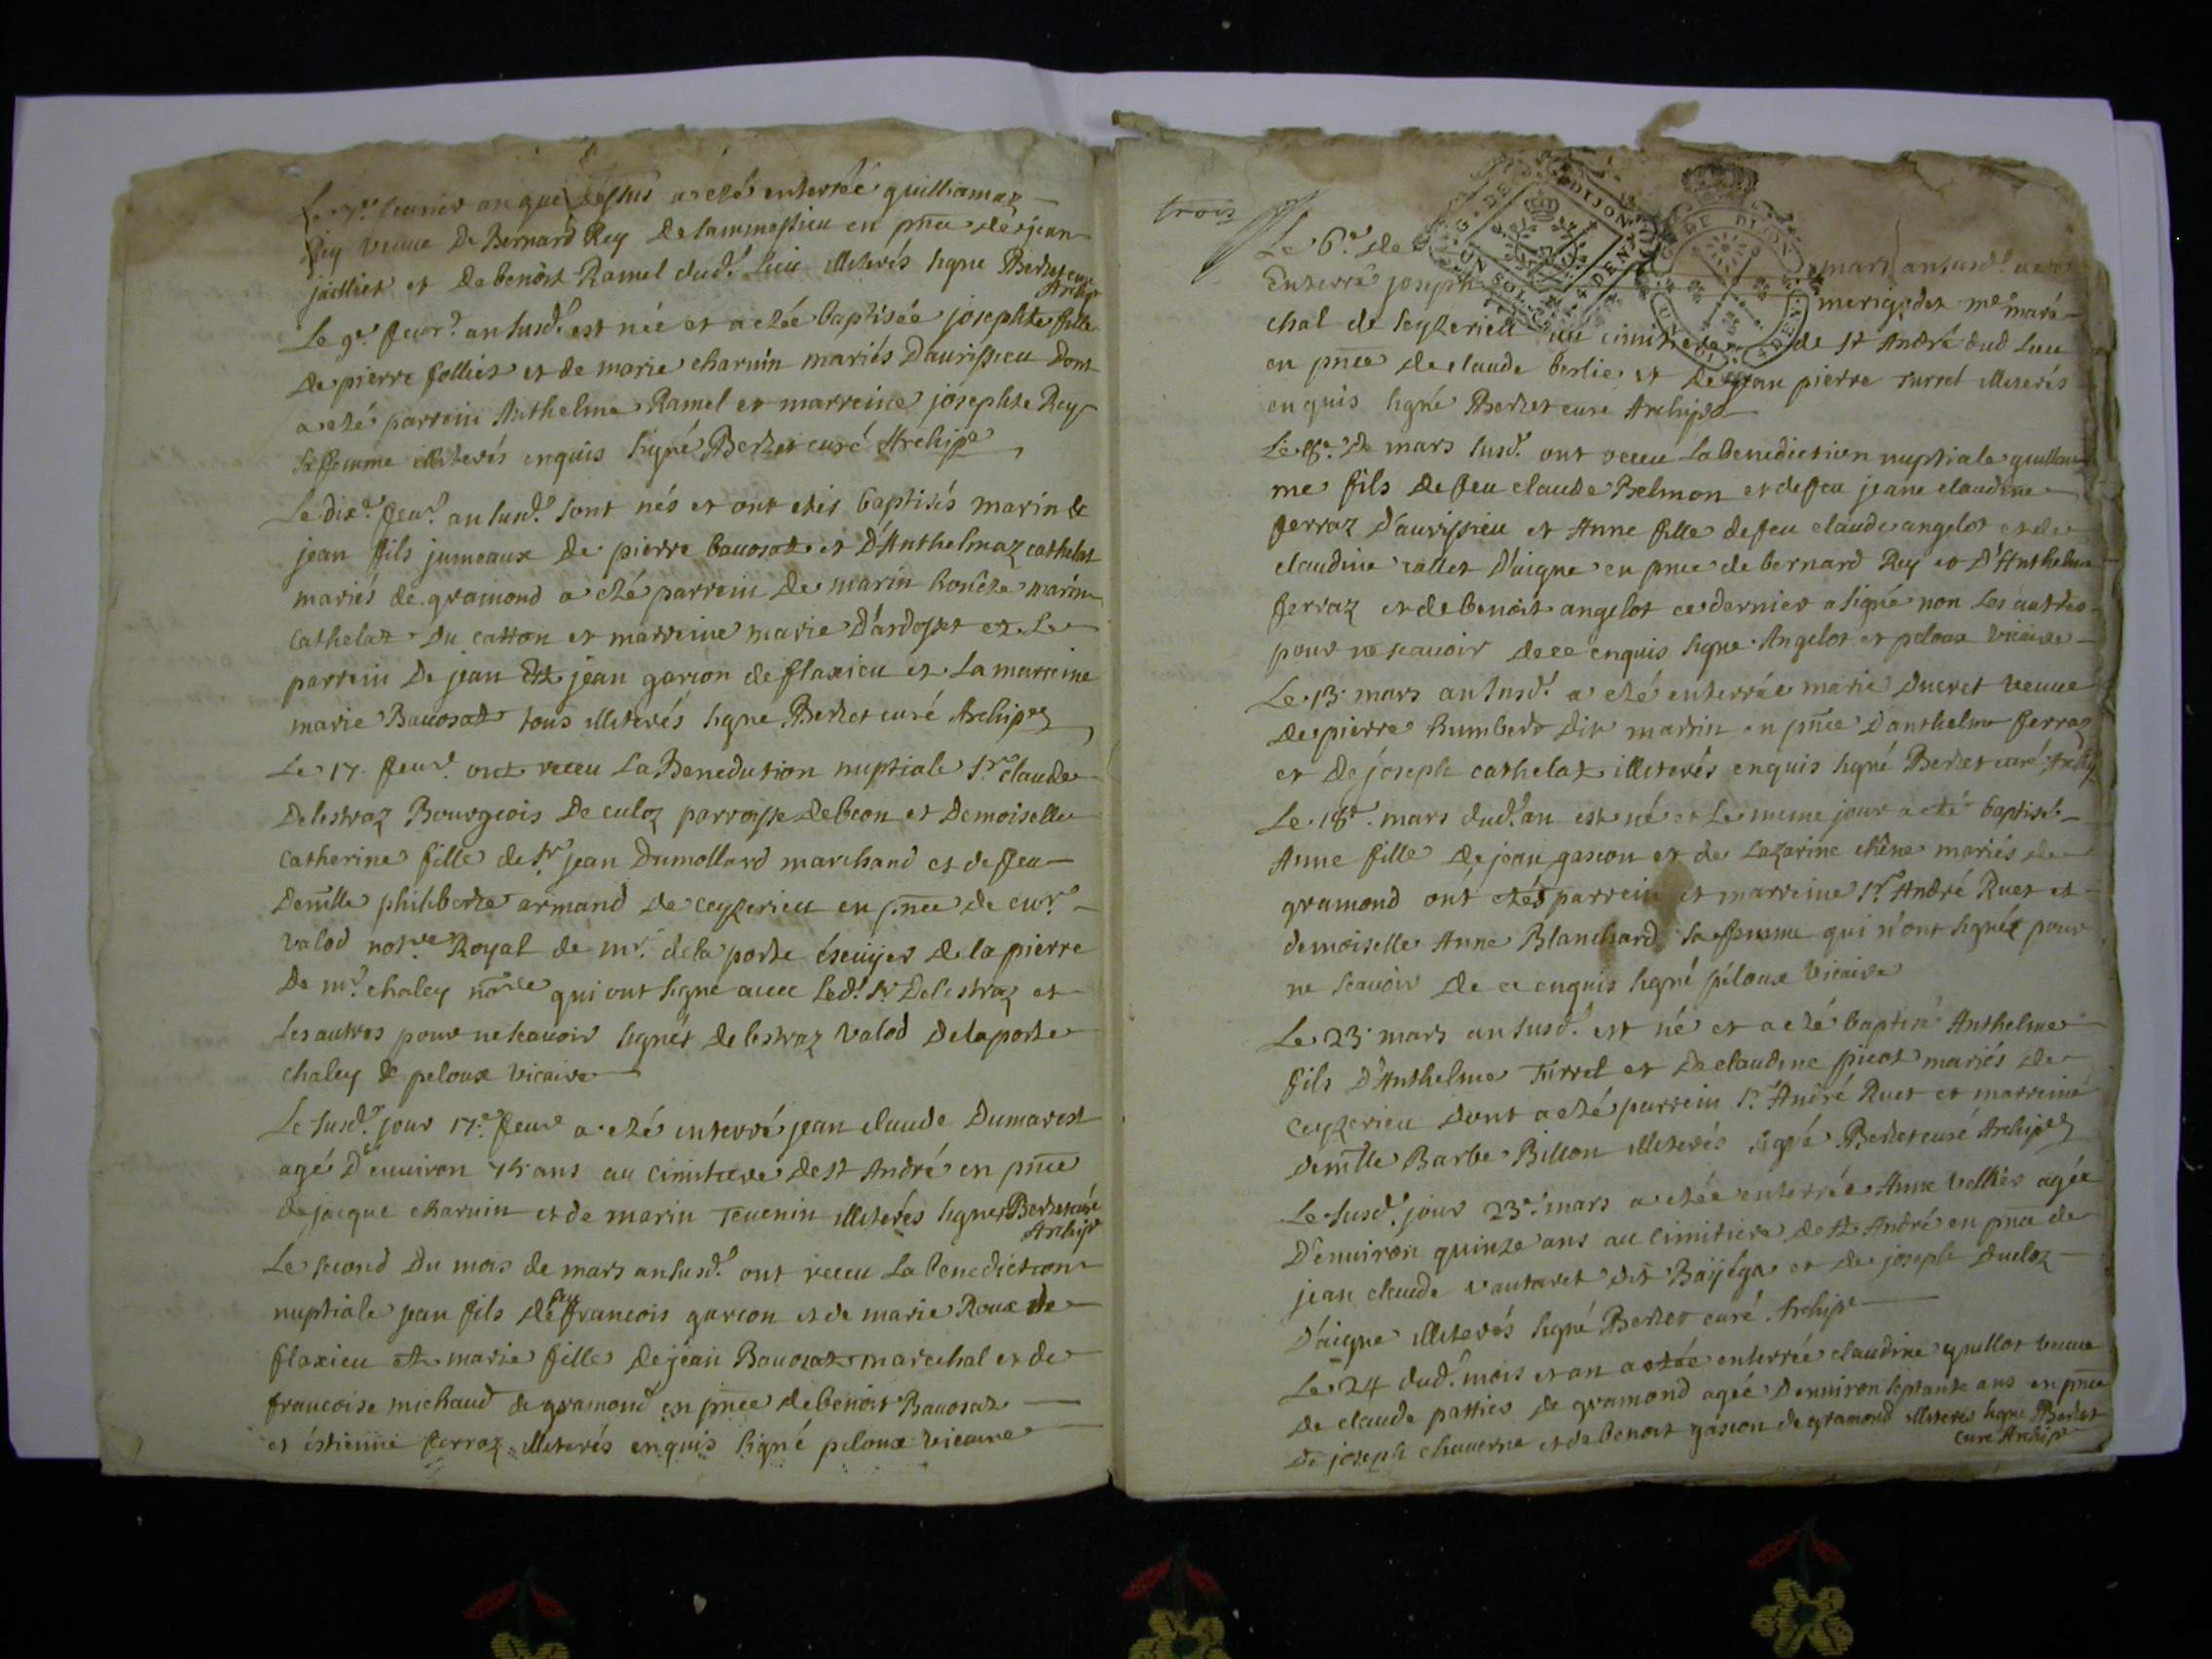 Le 7e. feurier an que dessus a eté enterreé guilliamaz
Rey veuue de Bernard Rey de sammessieu en pñce de jean
jacllier et de benoist Ramel dud.t lieu illiterés signe Berlet curé
Archip.e
Le 9e. feur.r an susd.t est née et a etée baptisée josephte fille
de pierre folliet et de marie charuin mariés d'aurissieu dont
a eté parrein Anthelme Ramel et marreine josephte Rey
sa femme illiterés enquis signé Berlet curé Archip.e
Le dix.e feur.r an susd.t sont nés et ont etés baptisés marin &
jean fils jumeaux de pierre bauosat et d'Anthelmaz cathelat
mariés de gramond a eté parrein de marin honéte marin
cathelat du catton et marreine marie d'ardosset et le
parrein de jean jean garcon de flaxieu et la marreine
marie Bauosat tous illiterés signé Berlet curé Archip.e
Le 17. feur.r ont receu la Benediction nuptiale s.r claude
Delestraz Bourgeois de culoz parroisse de beon et Demoiselle
catherine fille de s.r jean Dumollard marchand et de feu
demlle philiberte armand de ceyzerieu en pñce de eur.r
valod not.re Royal de m.r de la porte écuijer de la pierre
de m.r chaley no.re qui ont signé auec led.t s.r Delestraz et
les autres pour ne scauoir signés delestraz valod Delaporte
chaley & peloux vicaire
Le susd.t jour 17.e feur.r a eté enterré jean claude Dumarest
agé d'enuiron 75 ans au cimitiere de st André en pñce
de jacque charuin et de marin Teuenin illiterés signes Berlet curé
Archip.e
Le second du mois de mars an susd.t ont receu la benediction
nuptiale jean fils de feu francois garcon et de marie Roux de
flaxieu et marie fille de jean Bauosat marechal et de
francoise michaud de gramond en pñce de benoist Bauosat
et éstienne ferraz illiterés enquis signé peloux vicaire
trois
Le 6e. de mars an susd.t a eté
Enterré joseph merigodet me. maré-
chal de seyzerieu au cimitiere de st André dud lieu
en pñce de claude berlie et de jean pierre Turrel illiterés
enquis signé Berlet curé Archip.e
Le 8.e de mars susd.t ont receu la benediction nuptiale guillau-
me fils de feu claude Belmon et de feu jeane claudine
ferraz d'aurissieu et Anne fille de feu claude angelot et de
claudine tallet d'aigne en pnce de bernard Rey et d'Anthelme
ferraz et de benoist angelot ce dernier a signé non les autres
pour ne scauoir de ce enquis signe Angelot et peloux vicaire
Le 13 mars an susd.t a eté enterrée marie ducret veuue
de pierre humbert dit martin en pñce d'anthelme ferraz
et de joseph cathelat illiterés enquis signé Berlet curé Archip
Le 18e. mars dud.t an est né et le meme jour a eté baptisé
Anne fille de jean gascon et de Lazarine chêne mariés de
gramond ont etés parrein et marreine s.r André Ruet et
demoiselle Anne Blanchard sa femme qui n'ont signés pour
ne scauoir de ce enquis signé peloux vicaire
Le 23 mars an susd.t est né et a eté baptisé Anthelme
fils d'Anthelme Turrel et de claudine picot mariés de
ceyzerieu dont a eté parrein s.r André Ruet et marreine
demlle Barbe Billon illiterés signé Berlet curé Archip.e
Le susd.t jour 23.e mars a etée enterrée Anne vellier agée
d'enuiron quinze ans au cimitiere de st André en pñce de
jean claude vautaret dit Baijéga et de joseph Ducloz
d'aigne illiterés signé Berlet curé Archip.e
Le 24 dud.t mois et an a etée enterrée claudine guillot veuue
de claude pattier de gramond ageé d'enuiron septante ans en pñce
de joseph chauerne et de benoist gascon de gramond illiteres signe Berlet
Curé Archip.e
G. DE DIJON
UN SOL 4 DEN
G. DE DIJON
UN SOL 4 DEN